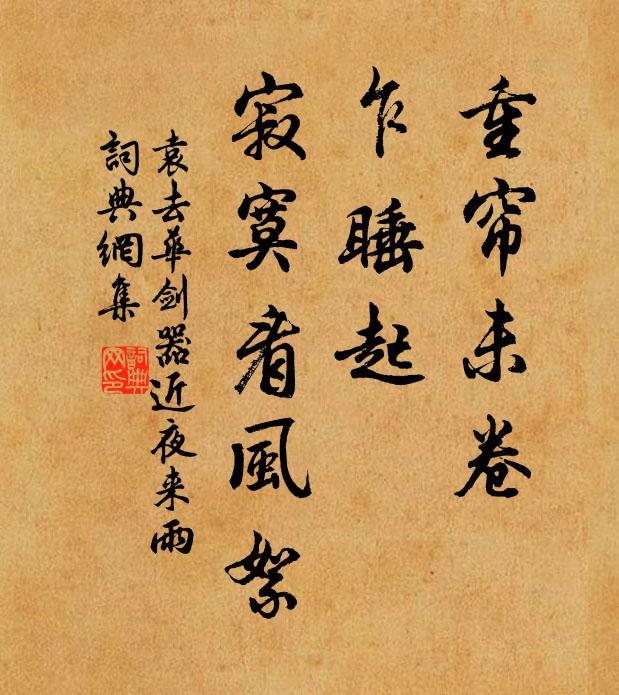 重帘未卷
乍睡起
寂寞看風絮
袁去華剑器近夜来雨
詞典網集
詞典网印